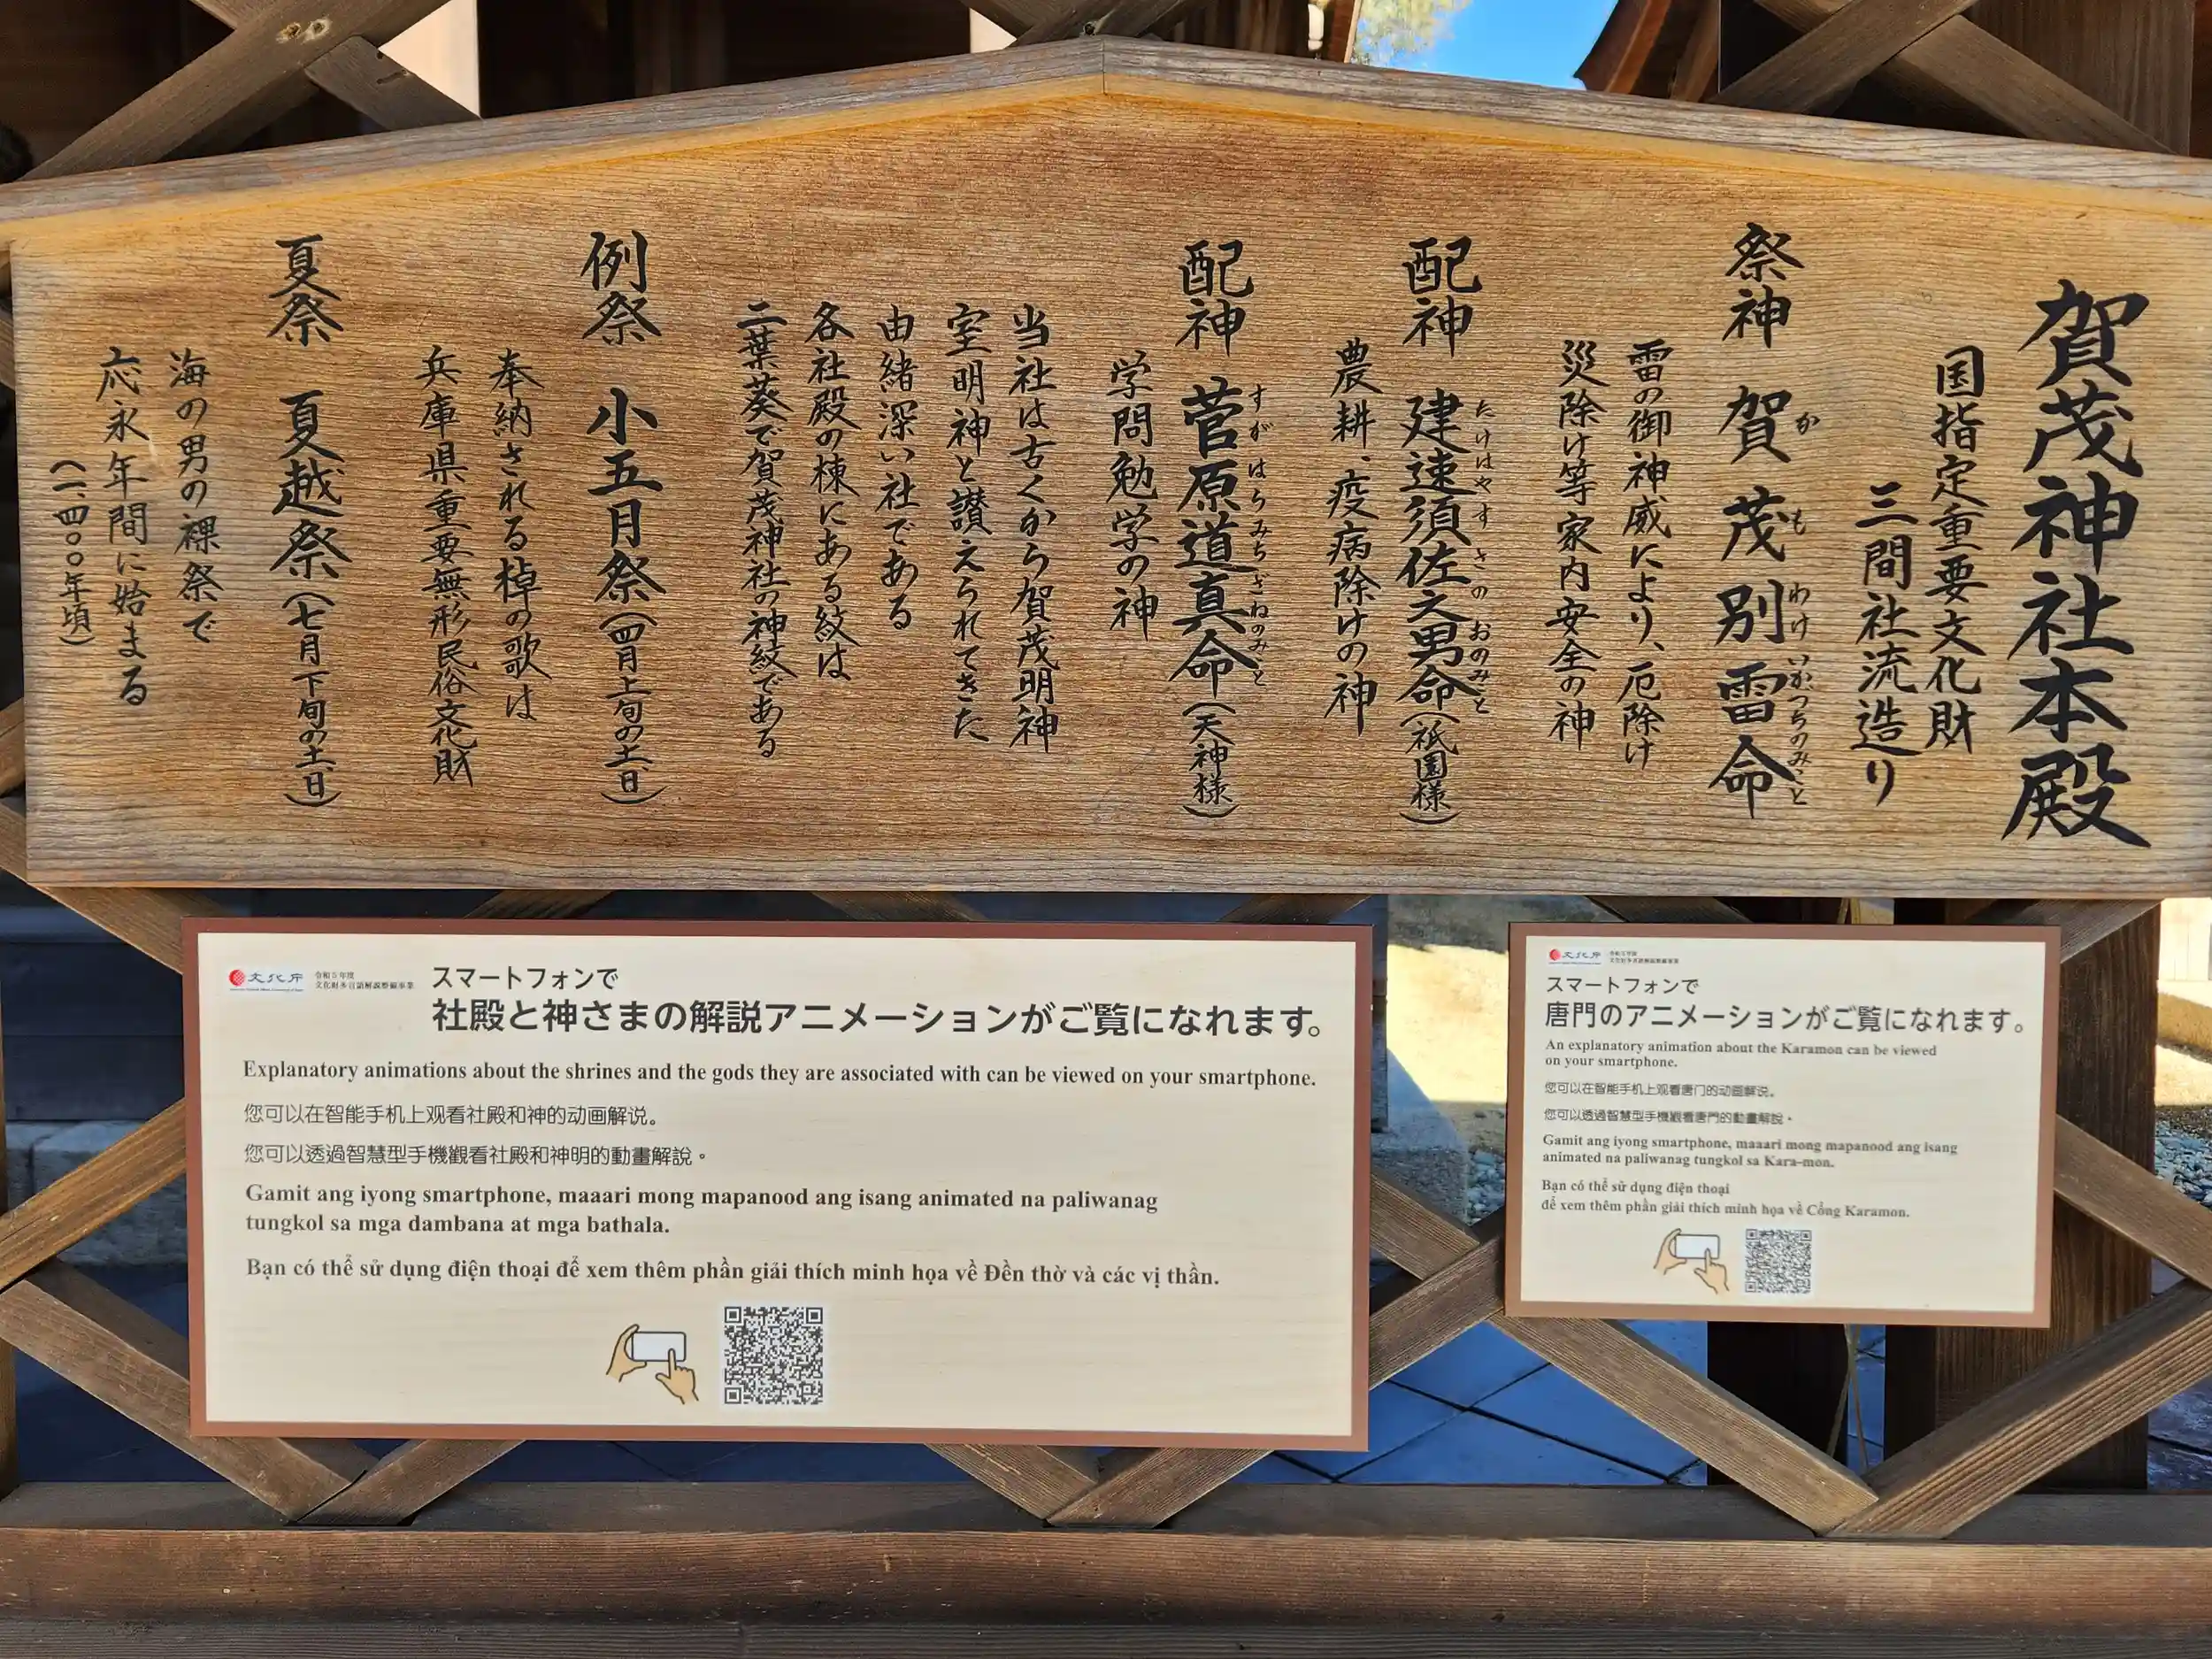 賀茂神社本殿
国指定重要文化財
三間社流造り
祭神 賀茂別雷命
か も わけ いかづちのみこと
雷の御神威により、厄除け
災除け等家内安全の神
配神 建速須佐之男命(祇園様)
たけはやすさのおのみこと
農耕、疫病除けの神
配神 菅原道真命(天神様)
すがはらみちざねのみこと
学問勉学の神
当社は古くから賀茂明神
室明神と讃えられてきた
由緒深い社である
各社殿の棟にある紋は
二葉葵で賀茂神社の神紋である
例祭 小五月祭(四月上旬の土・日)
奉納される棹の歌は
兵庫県重要無形民俗文化財
夏祭 夏越祭(七月下旬の土・日)
海の男の裸祭で
応永年間に始まる
(一、四〇〇年頃)
文化庁
令和5年度
文化財多言語解説整備事業
スマートフォンで
社殿と神さまの解説アニメーションがご覧になれます。
Explanatory animations about the shrines and the gods they are associated with can be viewed on your smartphone.
您可以在智能手机上观看社殿和神的动画解说。
您可以透過智慧型手機觀看社殿和神明的動畫解說。
Gamit ang iyong smartphone, maaari mong mapanood ang isang animated na paliwanag
tungkol sa mga dambana at mga bathala.
Bạn có thể sử dụng điện thoại để xem thêm phần giải thích minh họa về Đền thờ và các vị thần.
文化庁
令和5年度
文化財多言語解説整備事業
スマートフォンで
唐門のアニメーションがご覧になれます。
An explanatory animation about the Karamon can be viewed
on your smartphone.
您可以在智能手机上观看唐门的动画解说。
您可以透過智慧型手機觀看唐門的動畫解說。
Gamit ang iyong smartphone, maaari mong mapanood ang isang
animated na paliwanag tungkol sa Kara-mon.
Bạn có thể sử dụng điện thoại
để xem thêm phần giải thích minh họa về Cổng Karamon.